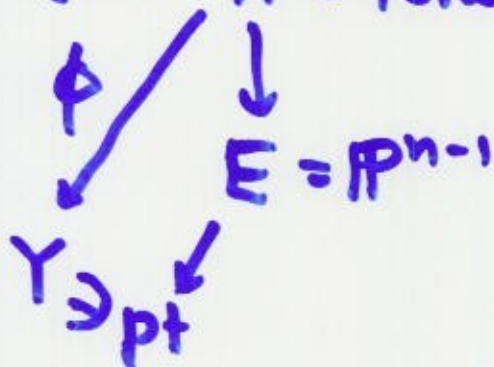 φ
E = ℙⁿ⁻¹
Y ∋ pt